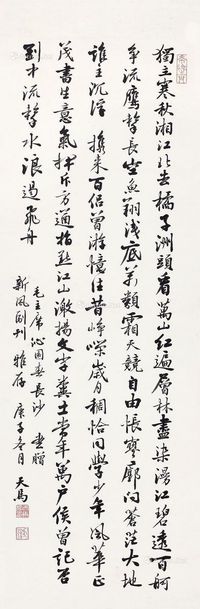 獨立寒秋湘江北去橘子洲頭看萬山紅遍層林盡染漫江碧透百舸
争流鹰擊長空魚翔淺底萬類霜天競自由悵寥廓问蒼茫大地
誰主沉浮 攜来百侣曾游憶往昔峥嵘歲月稠恰同學少年風華正
茂書生意氣揮斥方遒指點江山激揚文字糞土當年萬户侯曾記否
到中流擊水浪遏飛舟
毛主席沁园春長沙
新風副刊雅存 庚子冬月 天馬